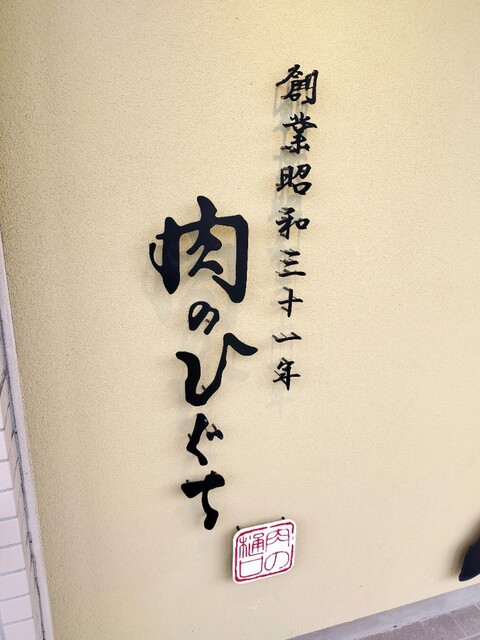 創業昭和三十一年
肉のひぐち
肉の
樋口